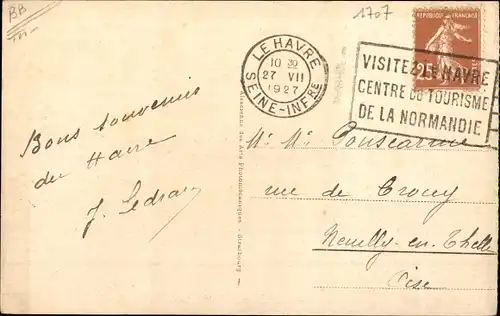 BB
1707
REPUBLIQUE FRANCAISE
25
LE HAVRE
10 30
27 VII
1927
SEINE-INFRE
VISITEZ LE HAVRE
CENTRE DU TOURISME
DE LA NORMANDIE
Bons souvenirs
du Havre
J.
rue de Crouy
Neuilly-en-Thelle
Oise
Alsacienne des Arts Photomécaniques - Strasbourg